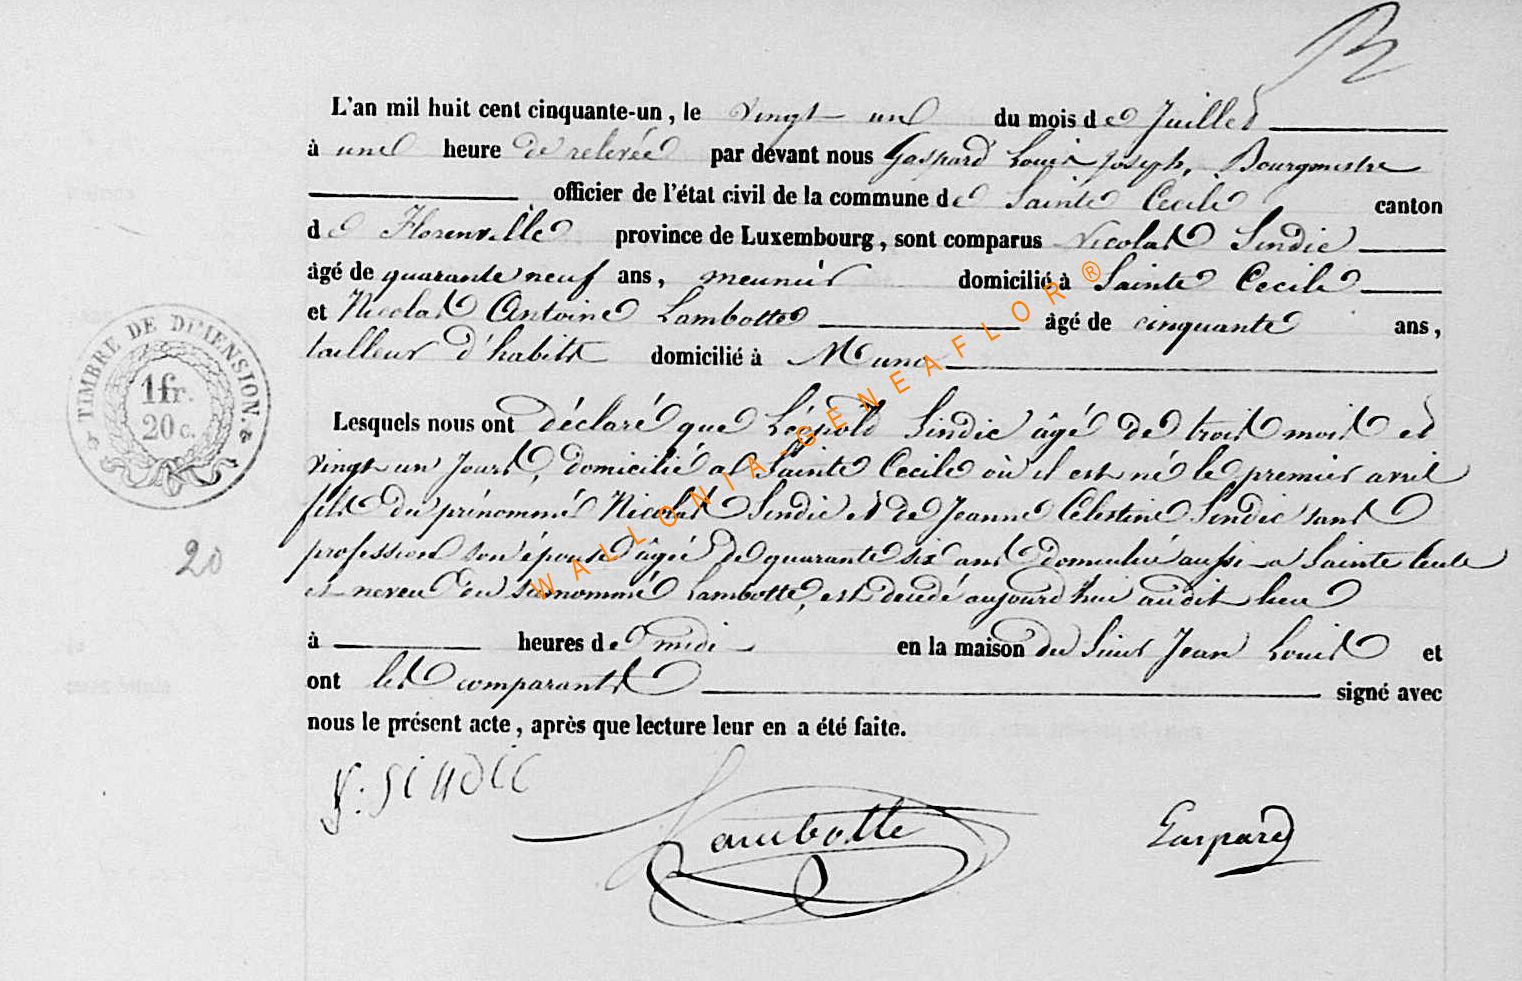 L'an mil huit cent cinquante-un, le vingt un du mois de Juillet
à une heure de relevée par devant nous Gaspard Louis Joseph, Bourgmestre
officier de l'état civil de la commune de Sainte Cecile canton
de Florenville province de Luxembourg, sont comparus Nicolas Sindic
âgé de quarante neuf ans, meunier domicilié à Sainte Cecile
et Nicolas Antoine Lambotte âgé de cinquante ans,
tailleur d'habits domicilié à Muno
Lesquels nous ont déclaré que Léopold Sindic âgé de trois mois et
vingt un jours, domicilié a Sainte Cecile où il est né le premier avril
fils du prénommé Nicolas Sindic et de Jeanne Célestine Sindic sans
profession son épouse âgée de quarante six ans domiciliée aussi a Sainte Cecile
et neveu du surnommé Lambotte, est decédé aujourd'hui audit lieu
à heures de midi en la maison du Sieur Jean Louis et
ont les comparants signé avec
nous le présent acte, après que lecture leur en a été faite.
TIMBRE DE DIMENSION.
1 fr.
20 c.
20
WALLONIA-GENEAFLOR®
SINDIC
Lambotte
Gaspard